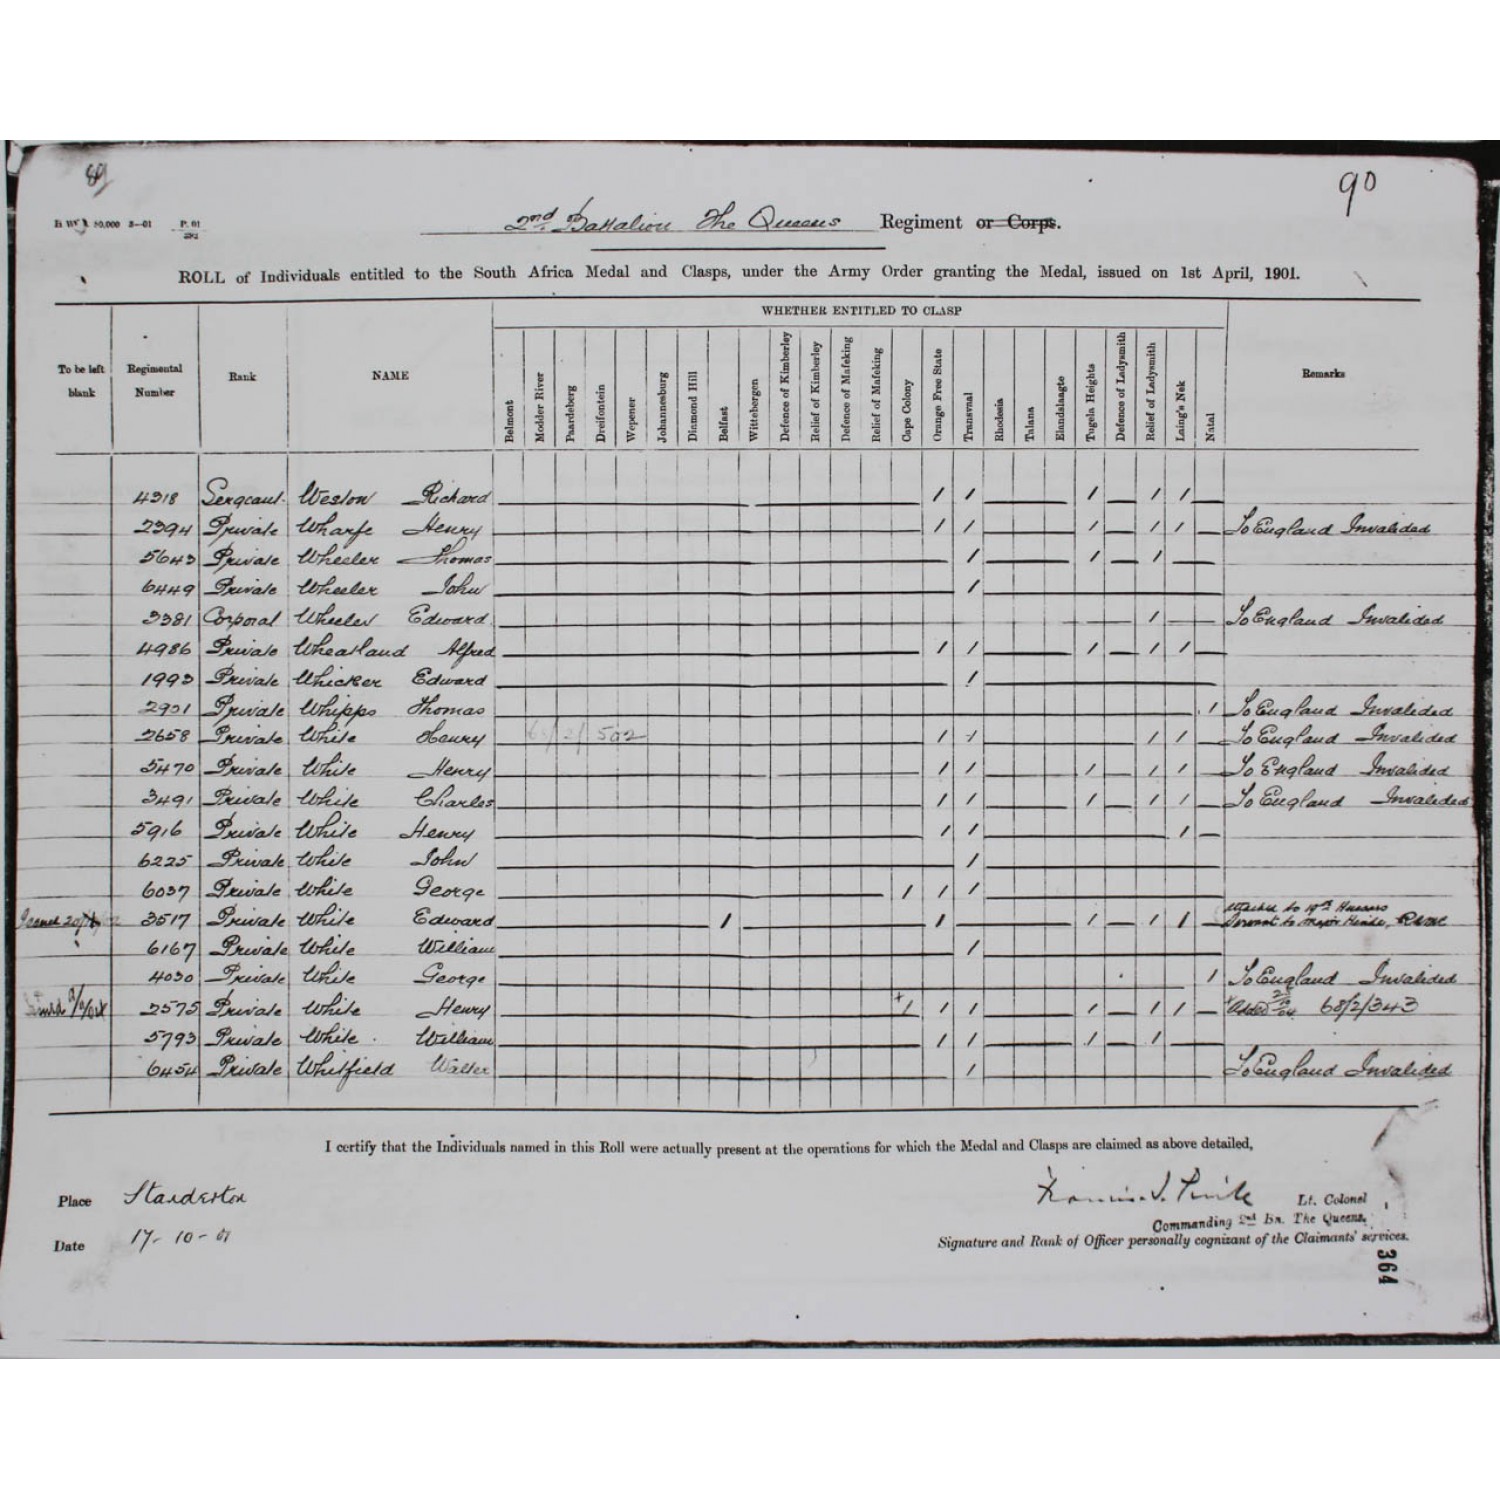 89
90
50,000 3—01 P. 01
2nd Battalion The Queens Regiment or Corps.
ROLL of Individuals entitled to the South Africa Medal and Clasps, under the Army Order granting the Medal, issued on 1st April, 1901.
To be left blank
Regimental Number
Rank
NAME
WHETHER ENTITLED TO CLASP
Belmont
Modder River
Paardeberg
Dreifontein
Wepener
Johannesburg
Diamond Hill
Belfast
Wittebergen
Defence of Kimberley
Relief of Kimberley
Defence of Mafeking
Relief of Mafeking
Cape Colony
Orange Free State
Transvaal
Rhodesia
Talana
Elandslaagte
Tugela Heights
Defence of Ladysmith
Relief of Ladysmith
Laing's Nek
Natal
Remarks
4318 Sergeant. Weston Richard / / — / — / / —
2394 Private Wharfe Henry / / — / — / / — To England Invalided
5643 Private Wheeler Thomas / / /
6449 Private Wheeler John /
3381 Corporal Wheeler Edward / To England Invalided
4986 Private Wheatland Alfred / / — / — / / —
1993 Private Whicker Edward /
2931 Private Whipps Thomas / To England Invalided
2658 Private White Henry 68/2/502 / / / / To England Invalided
5470 Private White Henry / / / / / To England Invalided
3491 Private White Charles / / — / — / / — To England Invalided
5916 Private White Henry / / / —
6225 Private White John /
6037 Private White George / / /
3517 Private White Edward / / / — / / attached to 19th Hussars
Servant to Major
6167 Private White William /
4030 Private White George / To England Invalided
2575 Private White Henry + / / / — / — / / — Added 68/2/343
5793 Private White William / / — / — /
6454 Private Whitfield Walter / To England Invalided
I certify that the Individuals named in this Roll were actually present at the operations for which the Medal and Clasps are claimed as above detailed,
Place Standerton
Lt. Colonel
Commanding 2nd Bn. The Queens.
Date 17-10-01
Signature and Rank of Officer personally cognizant of the Claimants' services.
364